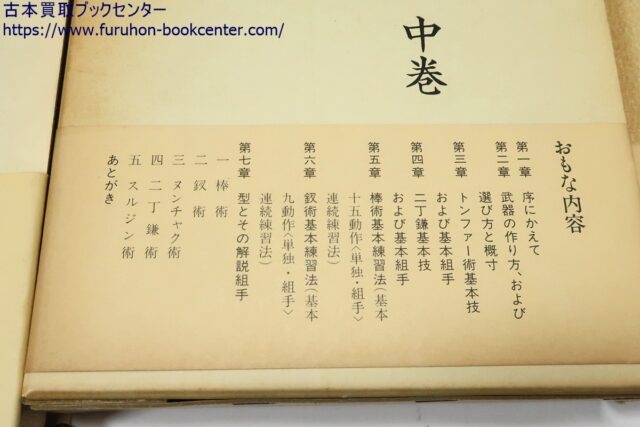 古本買取ブックセンター
https://www.furuhon-bookcenter.com/
中巻
おもな内容
第一章 序にかえて
第二章 武器の作り方、および
選び方と概寸
第三章 トンファー術基本技
および基本組手
第四章 二丁鎌基本技
および基本組手
第五章 棒術基本練習法(基本
十五動作〈単独・組手〉
連続練習法)
第六章 釵術基本練習法(基本
九動作〈単独・組手〉
連続練習法)
第七章 型とその解説組手
一 棒術
二 釵術
三 ヌンチャク術
四 二丁鎌術
五 スルジン術
あとがき